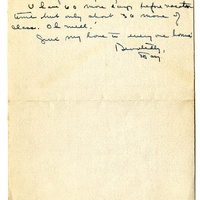 I have 60 more days before vacation
time but only about 30 more of
class. Oh well!
Give my love to everyone home
Devotedly,